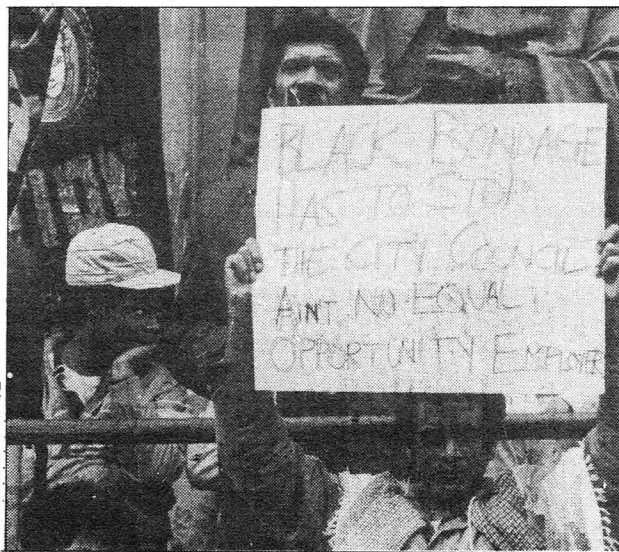 BLACK BONDAGE
HAS TO STOP
THE CITY COUNCIL
AINT NO EQUAL
OPPORTUNITY EMPLOYER